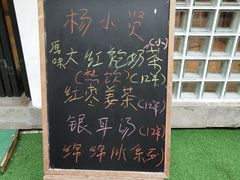 杨小贤
原味大红袍奶茶(小)
(热饮)(12羊)
红枣姜茶(12羊)
银耳汤(12羊)
绵绵冰系列